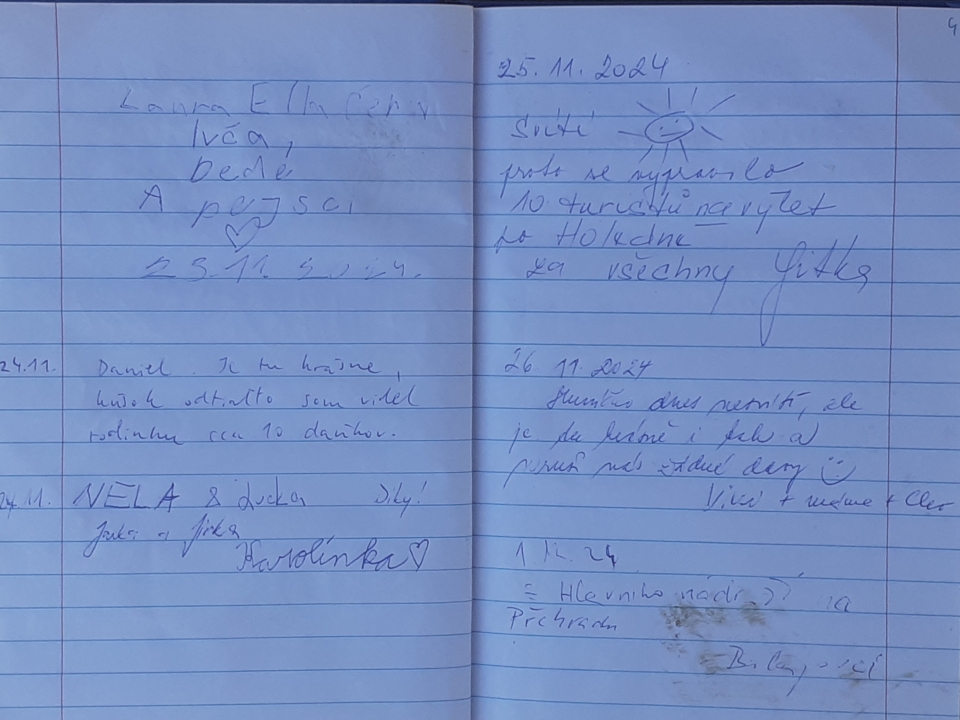 Laura Ella
Ivča,
Dedé
A pejsci
23.11.2024.
24.11. Daniel. Je tu krásne,
kúsok odtialto som videl
rodinku cca 10 daňkov.
24.11. NELA & Lucka Díky!
a Jirka
Karolínka
4
25.11.2024
Svítí
proto se vypravilo
10 turistů na výlet
po Holedné
za všechny Jitka
26 11. 2024
Sluníčko dnes nesvítí, ale
je tu krásně i tak a
nás žádné davy
+ máme +
1 12. 24
Z Hlavního nádr.
Přehradu